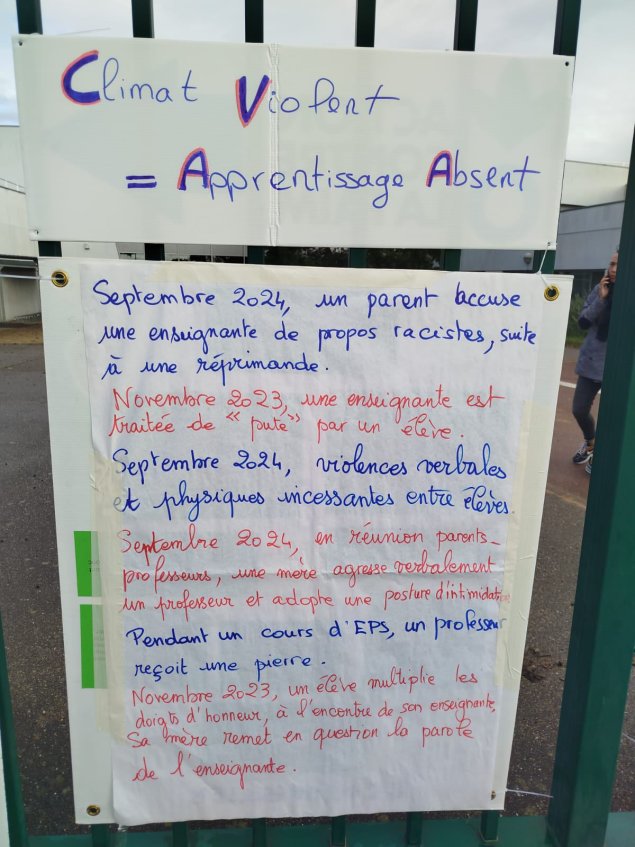 Climat Violent
= Apprentissage Absent
Septembre 2024, un parent accuse
une enseignante de propos racistes, suite
à une réprimande.
Novembre 2023, une enseignante est
traitée de "pute" par un élève.
Septembre 2024, violences verbales
et physiques incessantes entre élèves.
Septembre 2024, en réunion parents-
professeurs, une mère agresse verbalement
un professeur et adopte une posture d'intimidation
Pendant un cours d'EPS, un professeur
reçoit une pierre.
Novembre 2023, un élève multiplie les
doigts d'honneur, à l'encontre de son enseignante,
Sa mère remet en question la parole
de l'enseignante.